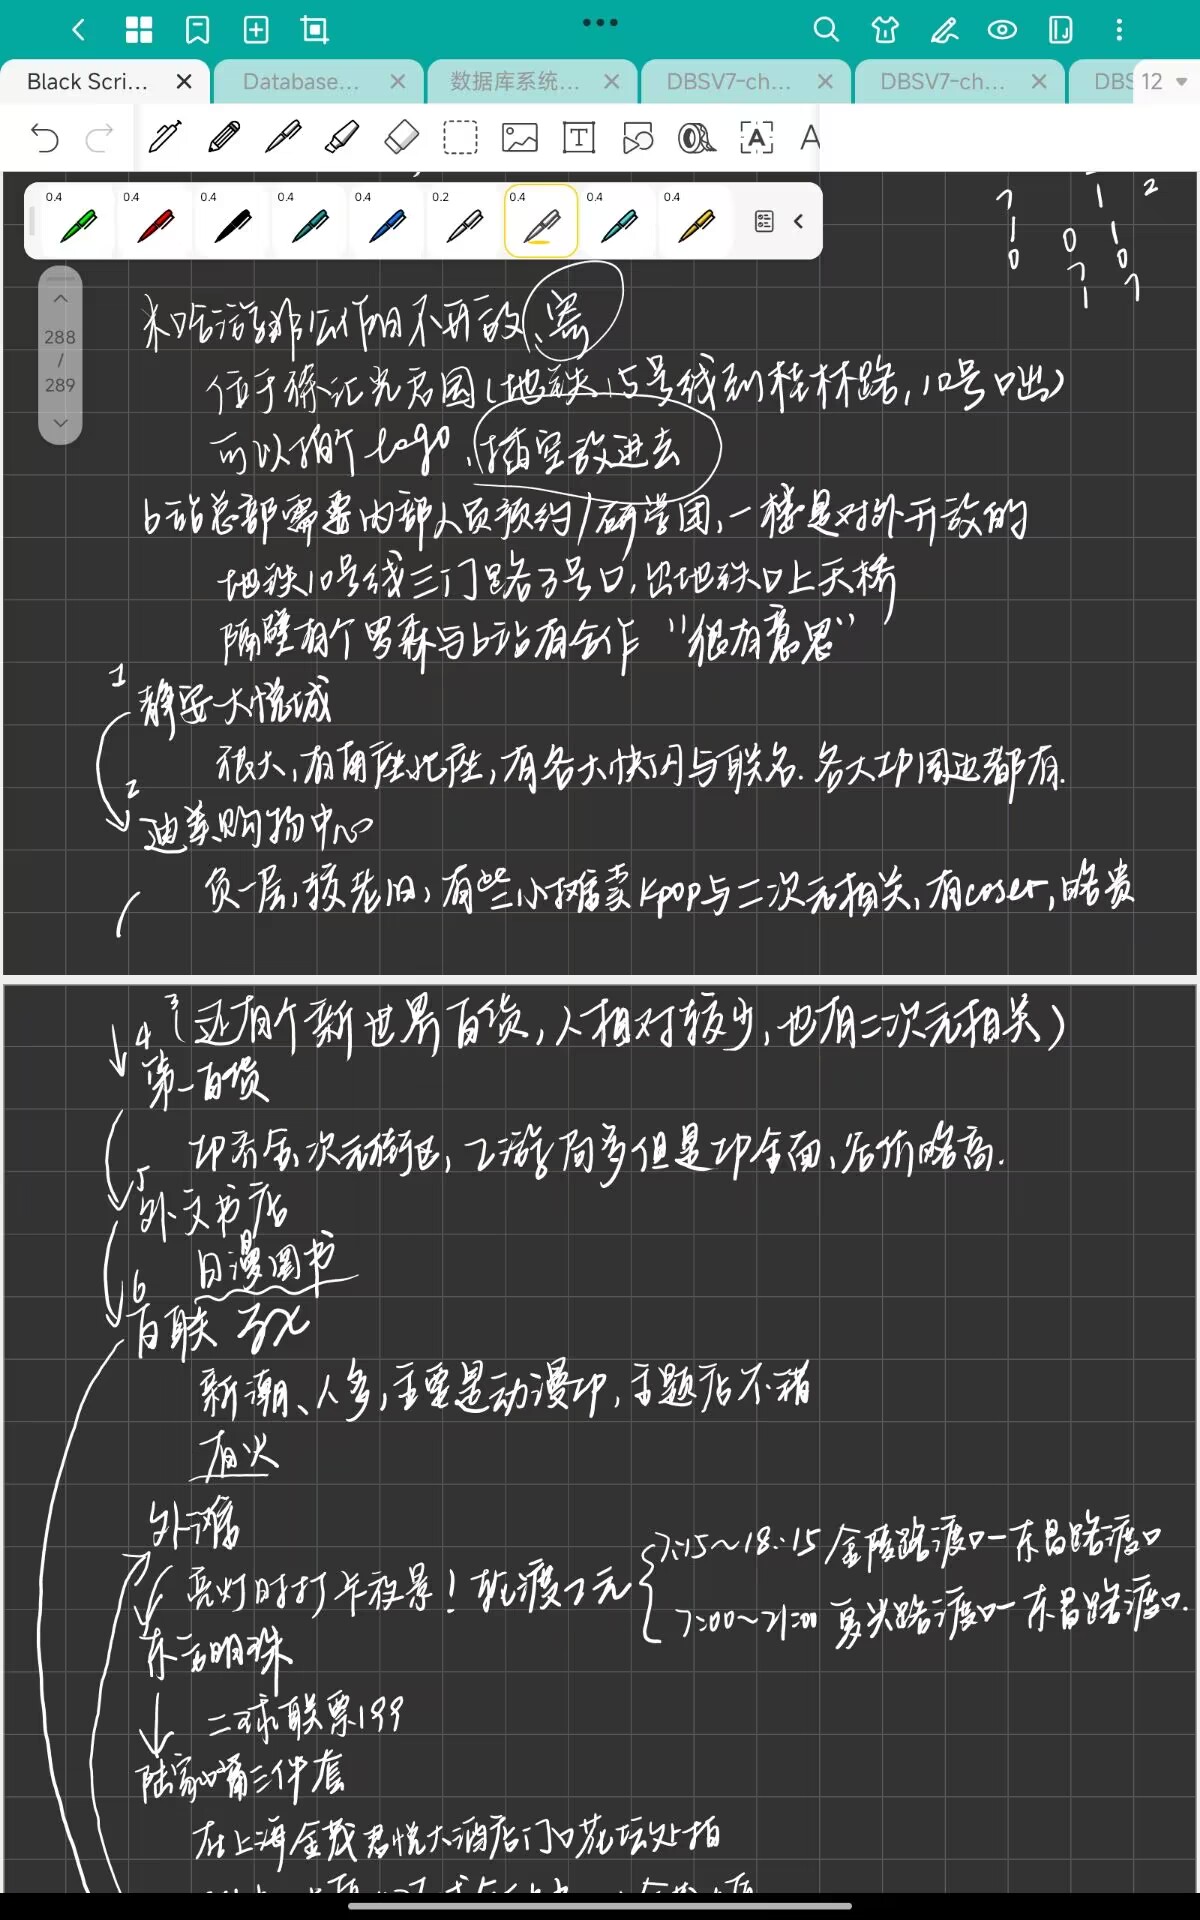 Black Scri...
Database...
数据库系统...
DBSV7-ch...
DBSV7-ch...
DBS
12
0.4 0.4 0.4 0.4 0.4 0.2 0.4 0.4 0.4
7 1 2
1 0 1
0 7 0
1 7
288
/
289
米哈游
位于徐汇光启园(地铁15号线到桂林路,10号口出)
可以拍个logo,插空放进去
b站总部需要内部人员预约/研学团,一楼是对外开放的
地铁10号线三门路3号口,出地铁口上天桥
隔壁有个罗森与b站有合作“很有意思”
1
静安大悦城
很大,有南座北座,有各大快闪与联名.各大IP周边都有.
2
迪美购物中心
负一层,较老旧,有些小摊卖kpop与二次元相关,有coser,略贵
3
(还有个新世界百货,人相对较少,也有二次元相关)
4
第一百货
次元街区,乙游局多但是IP全面,后价略高.
5
外文书店
日漫图书
6
百联ZX
新潮、人多,主要是动漫IP,主题店不错
有火
外滩
亮灯时打卡夜景!轮渡2元
7:15~18:15 金陵路渡口—东昌路渡口
7:00~21:00 复兴路渡口—东昌路渡口.
东方明珠
二球联票199
陆家嘴三件套
在上海金茂君悦大酒店门口花坛处拍